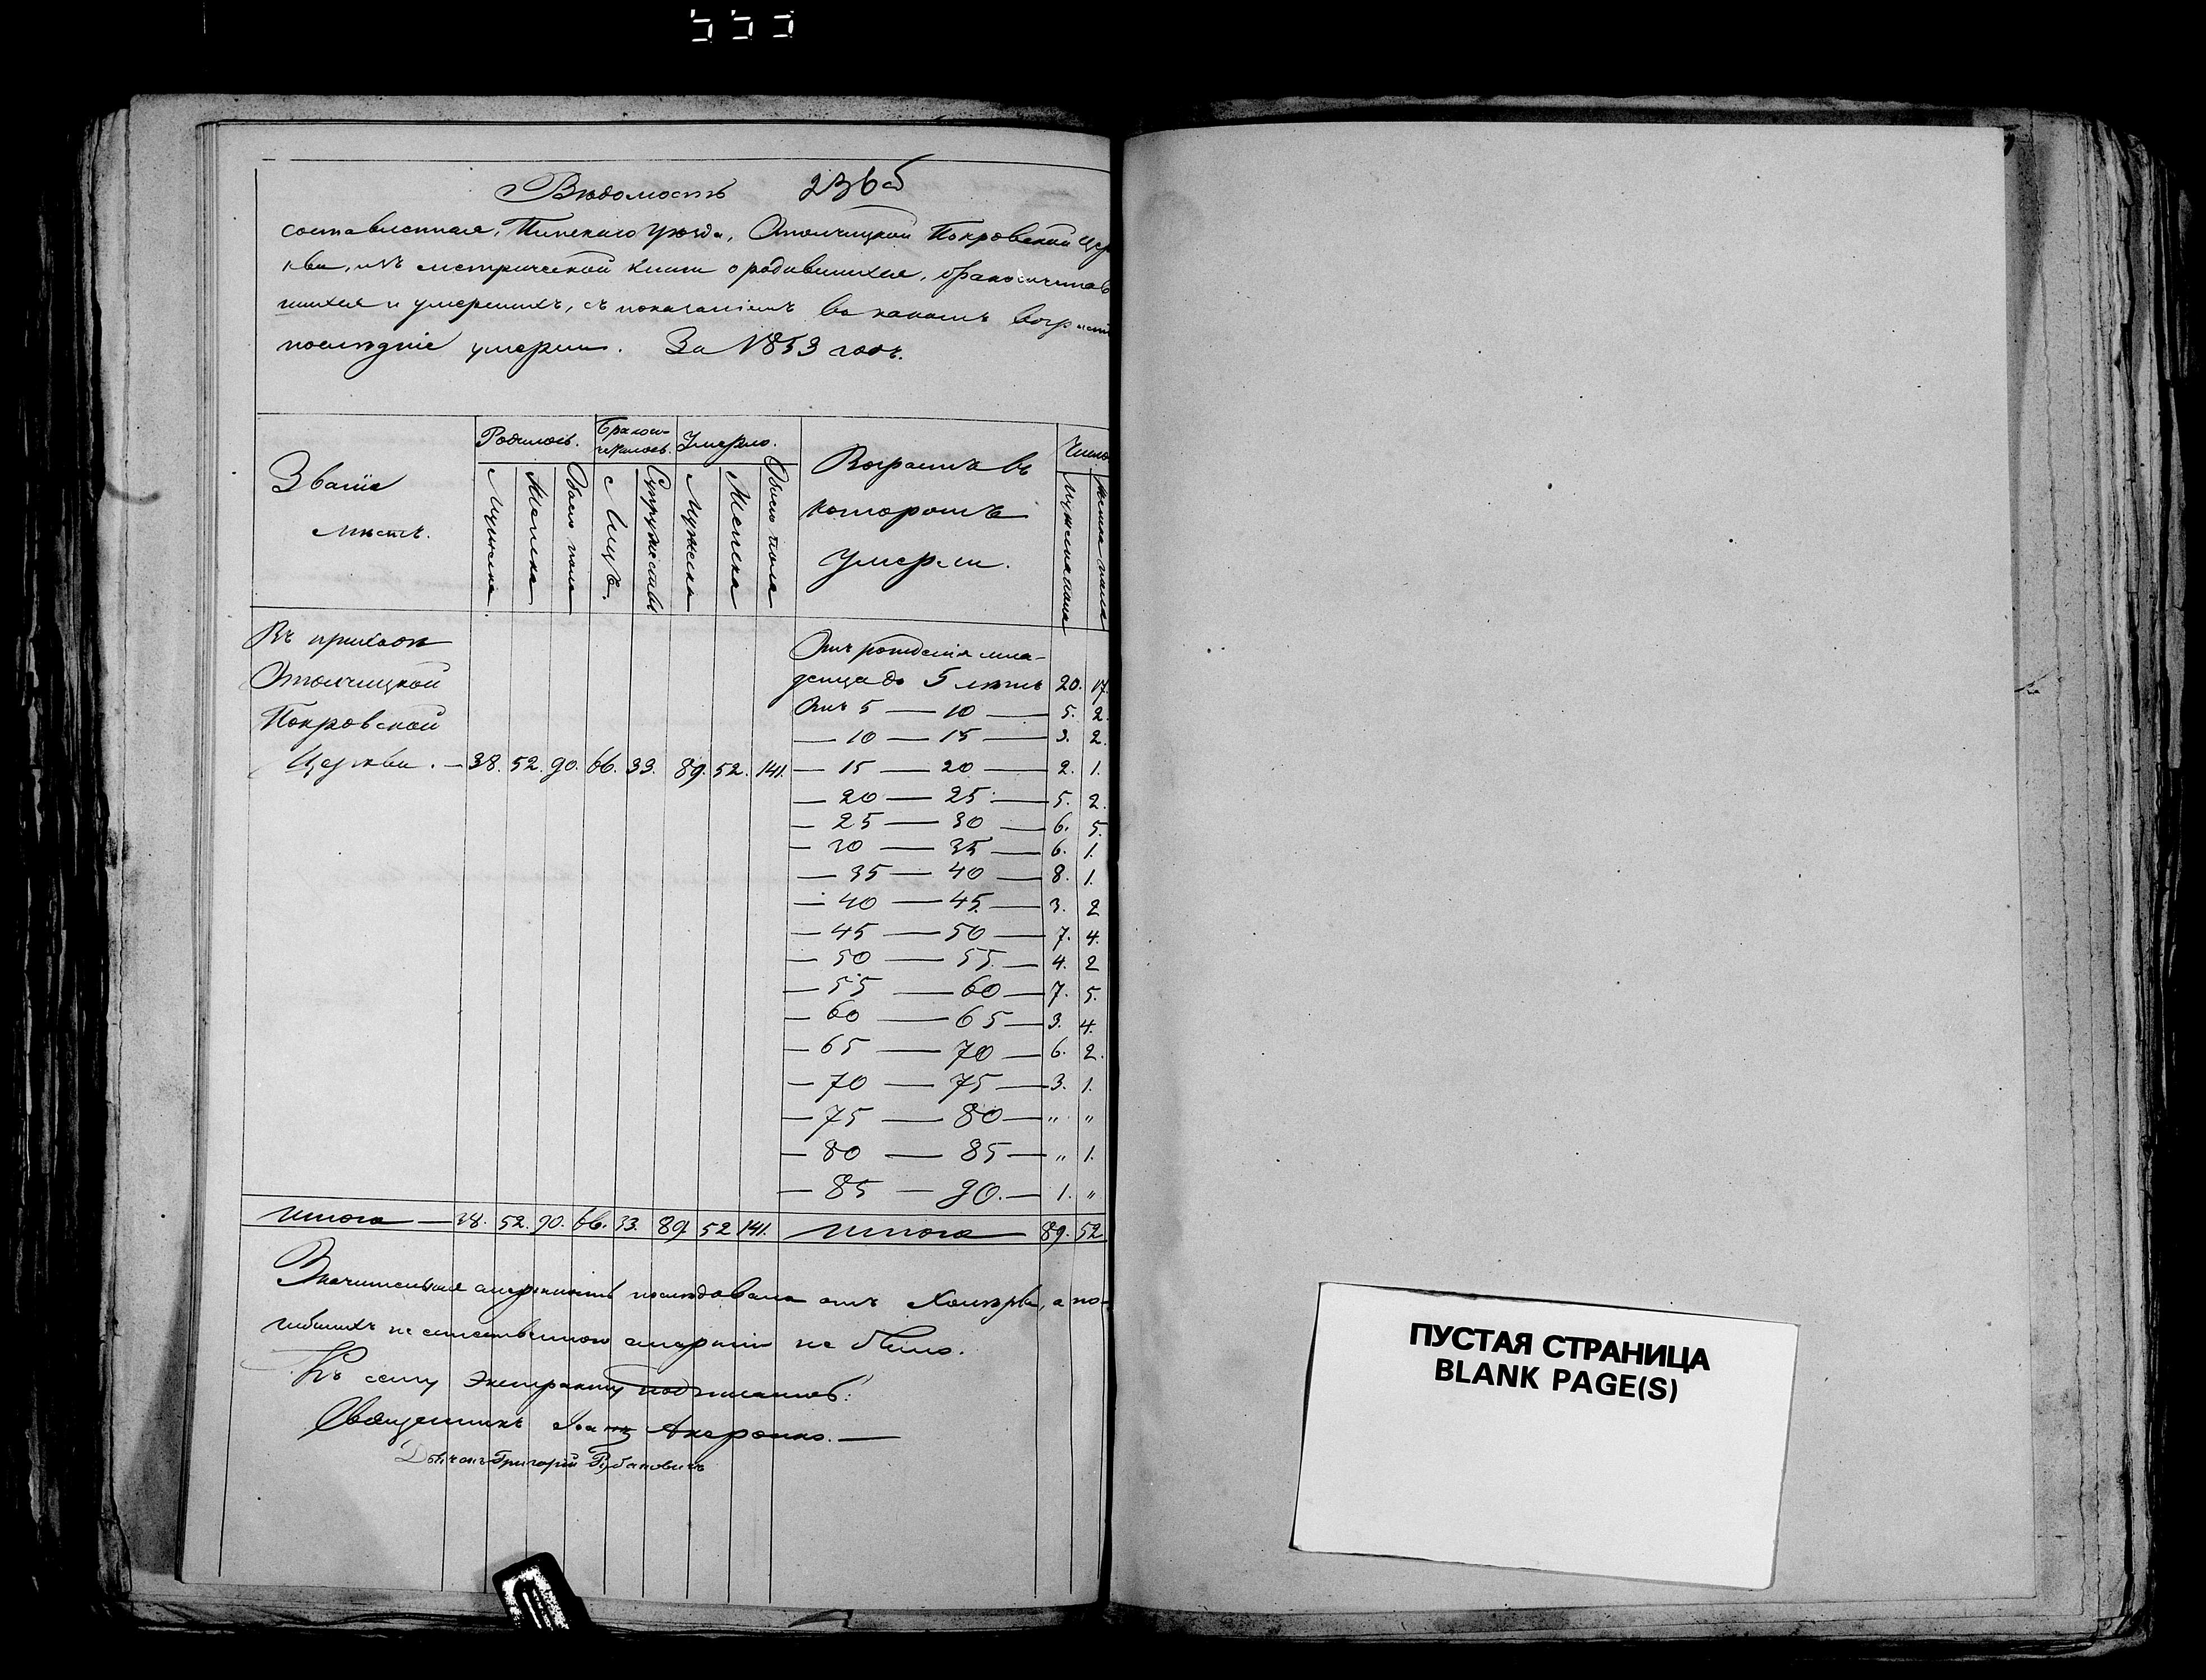 Вѣдомость 236б
составленная, Пинскаго уѣзда, Отолчицкой Покровской Цер
кви, изъ метрической книги о родившихся, бракосочетав
шихся и умершихъ, съ показаніемъ въ какомъ возрастѣ
послѣдніе умерли. За 1853 годъ.
Званіе мѣстъ.
Родилось. Бракосочеталось. Умерло.
Возрастъ въ
которомъ
умерли.
Число
Мужеска Женска Обоего пола Лицъ. Супружествъ Мужеска Женска Обоего пола Мужеска пола Женска пола
Въ приходѣ
Отолчицкой
Покровской
Церкви. — 38. 52. 90. 66. 33. 89. 52. 141.
Отъ рожденія мла-
денца до 5 лѣтъ 20. 17.
Отъ 5 — 10 — 5. 2.
— 10 — 15 — 3. 2.
— 15 — 20 — 2. 1.
— 20 — 25 — 5. 2.
— 25 — 30 — 6. 5.
— 30 — 35 — 6. 1.
— 35 — 40 — 8. 1.
— 40 — 45 — 3. 2
— 45 — 50 — 7. 4.
— 50 — 55 — 4. 2
— 55 — 60 — 7. 5.
— 60 — 65 — 3. 4.
— 65 — 70 — 6. 2.
— 70 — 75 — 3. 1.
— 75 — 80 — " "
— 80 — 85 — " 1.
— 85 — 90. — 1. "
Итого — 38. 52. 90. 66. 33. 89. 52 141. Итого 89. 52
Значительная смертность послѣдовала отъ Холеры, а по-
гибшихъ не естественною смертію не было.
Къ сему экстракту подписались:
Священникъ Іоаннъ
Дьячокъ Григорій Рубановичъ
ПУСТАЯ СТРАНИЦА
BLANK PAGE(S)